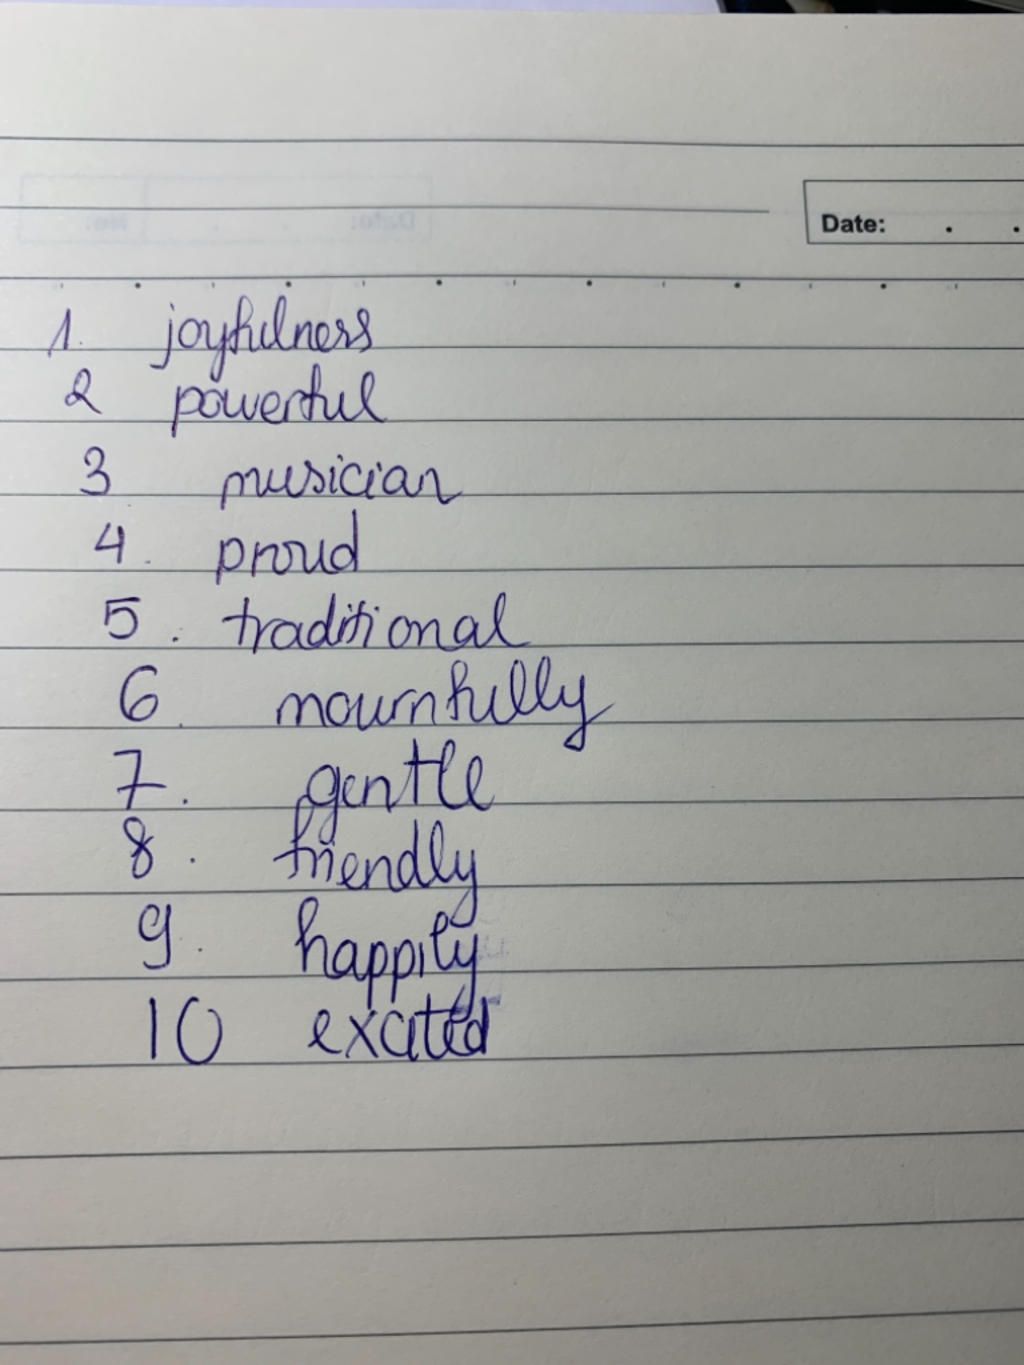 Date: . .
1. joyfulness
2 powerful
3 musician
4. proud
5. traditional
6. mournfully
7. gentle
8. friendly
9. happily
10 excited